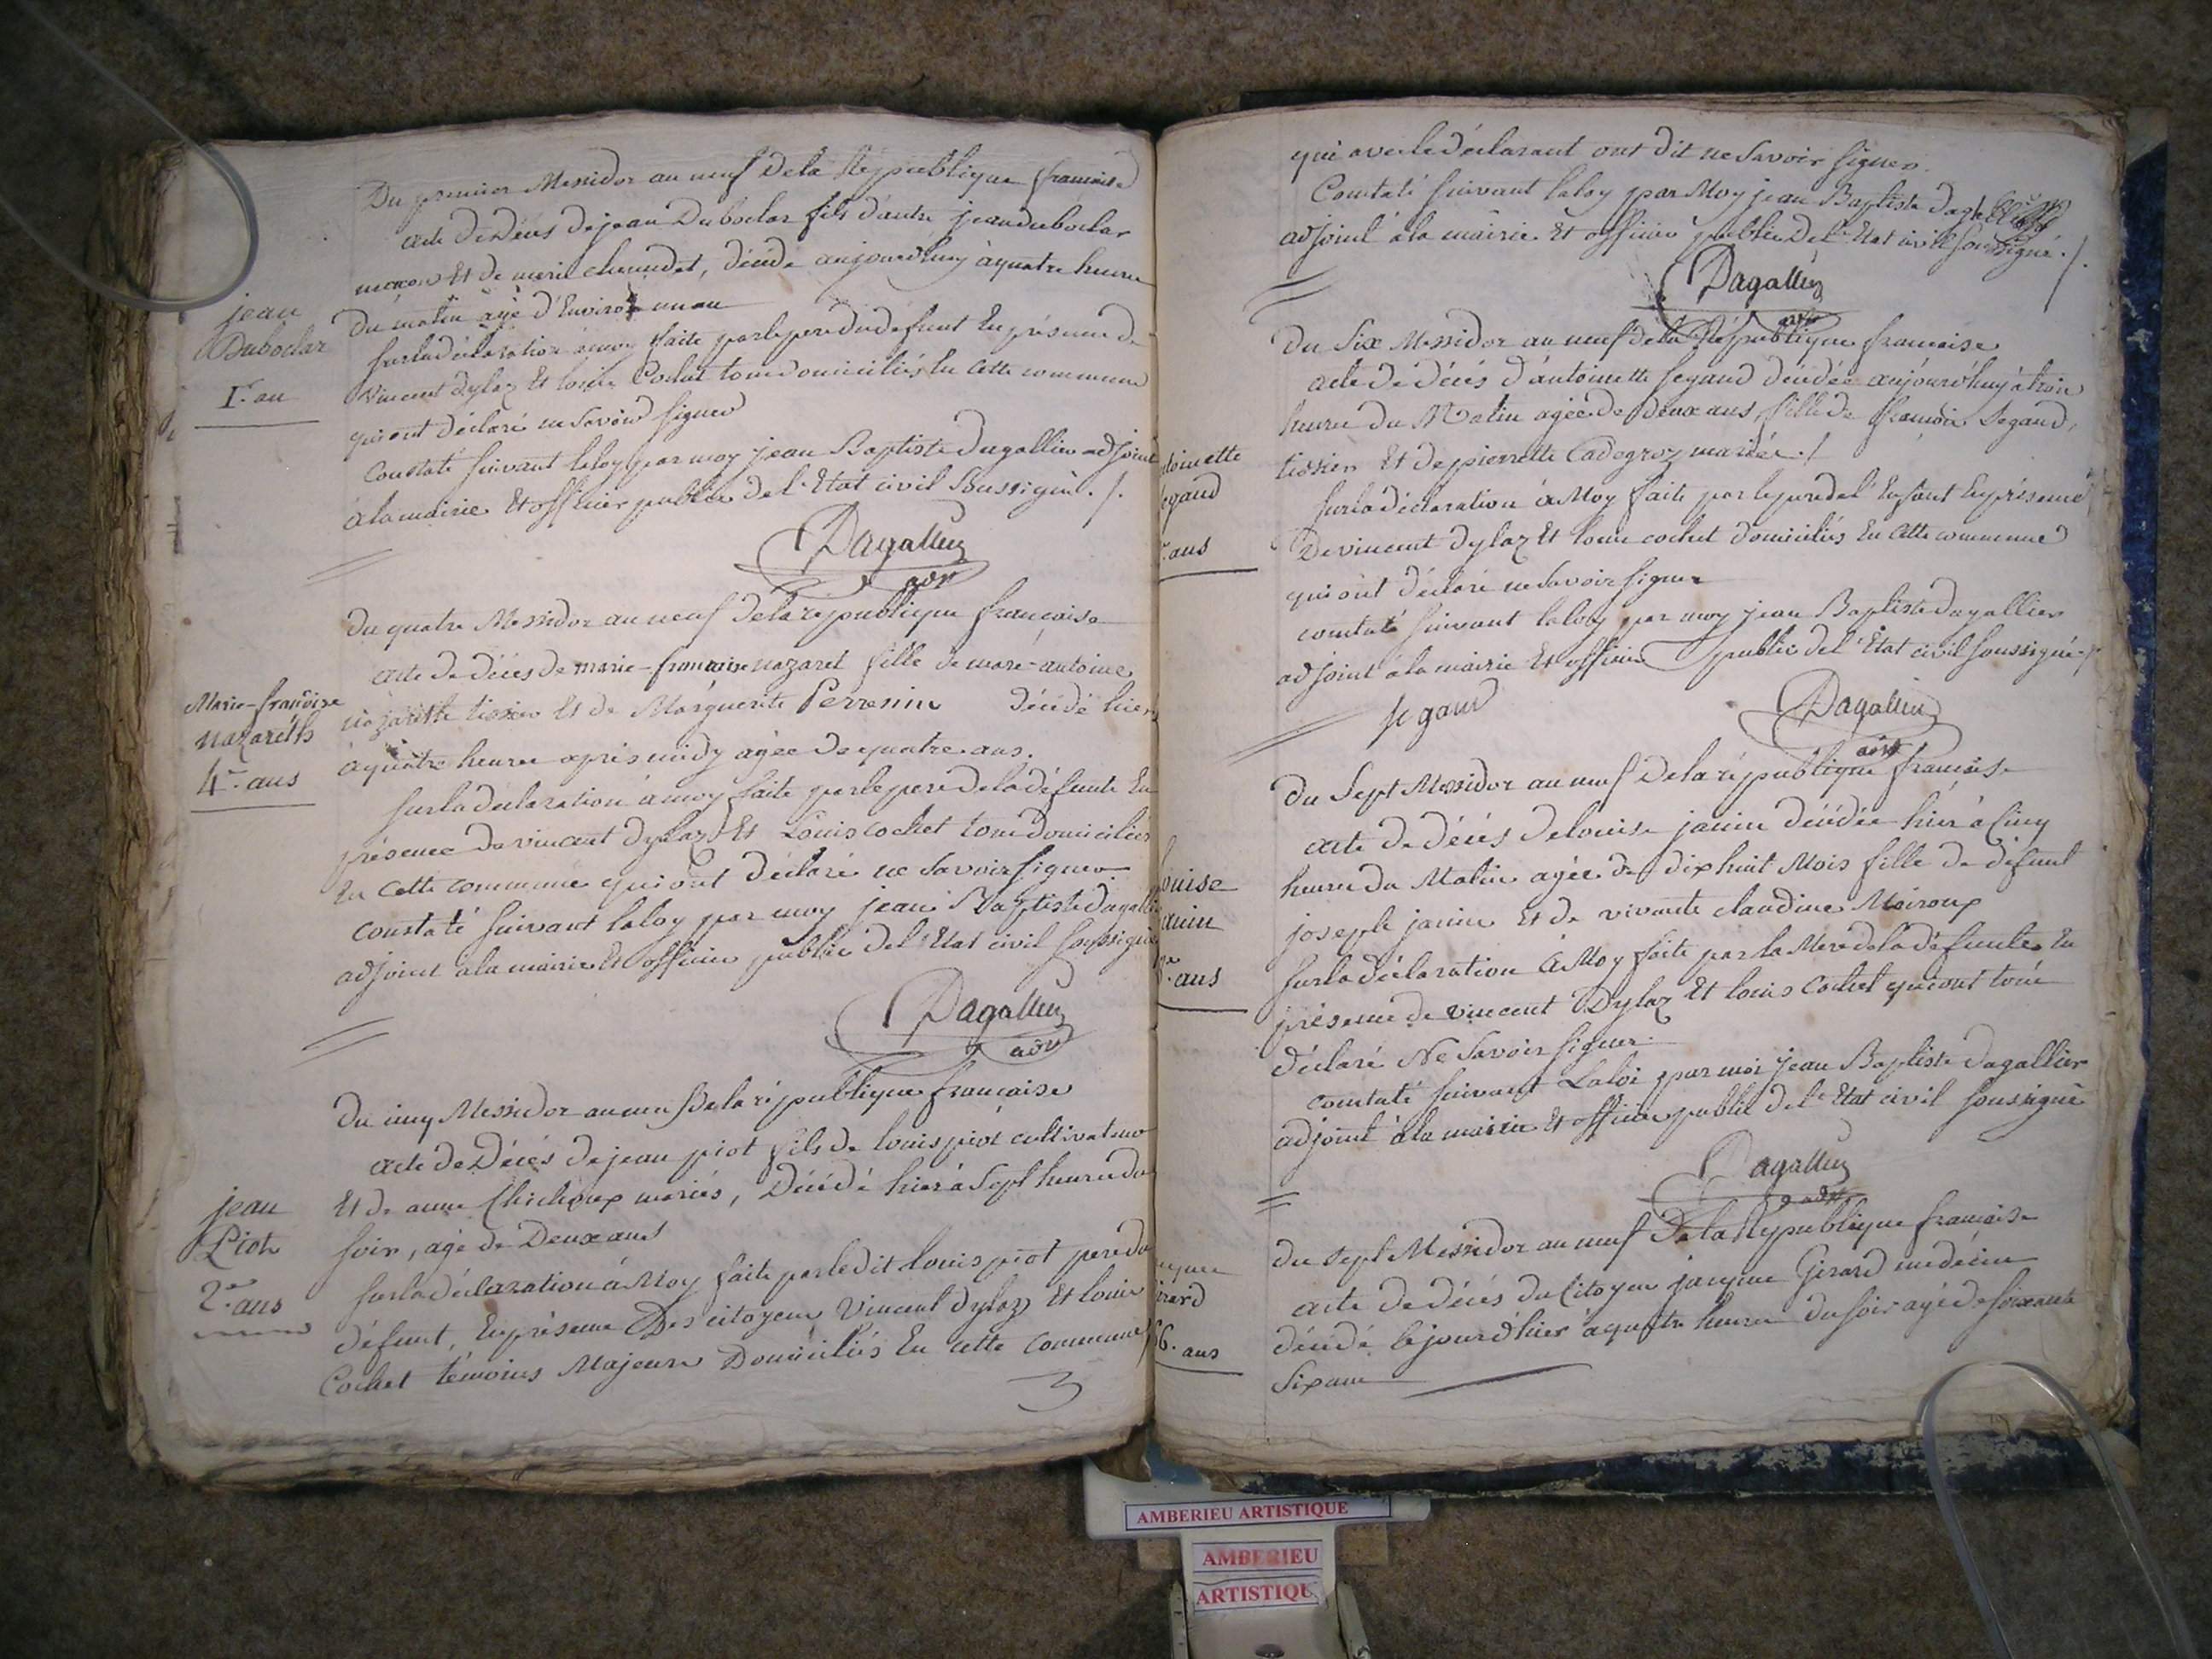 Du premier Messidor an neuf De la Republique francaise
acte De Décés de jean Duboclar fils d'autre jean duboclar
macon Et de marie chaudet, décédé aujourd'huy à quatre heure
Du matin agé d'Environ un an
jean
Duboclar
1.r an
sur la déclaration a moy faite par le pere du defunt En présence de
Vincent Dylaz Et louis Cochet tous domiciliés En Cette commune
qui ont déclaré ne Savoir signer
Constaté suivant la loy par moy jean Baptiste Dagallier adjoint
à la mairie Et officier public de l'Etat civil Soussigné ./.
Dagallier
adjt
Du quatre Messidor an neuf de la république francaise
acte de décés de marie-francoise nazaret fille de marc-antoine
Marie-francoise
nazareth
4.r ans
nazareth tissier Et de Marguerite Perrenin décédé hier
à quatre heures aprés midy agée de quatre ans.
sur la déclaration à moy faite par le pere de la défunte En
présence de vincent dylaz Et Louis cochet tous domiciliés
En cette commune qui ont déclaré ne Savoir signer
constaté suivant la loy par moy jean Baptiste dagallier
adjoint a la mairie Et officier public de l'Etat civil soussigné
Dagallier
adjt
Du cinq Messidor an neuf De la république francaise
acte de Décés de jean piot fils de louis piot cultivateur
jean
Piot
2.r ans
Et de anne Chichoux mariés, Décédé hier à Sept heure du
soir, agé de Deux ans
sur la déclaration à Moy faite par le dit louis piot pere du
défunt, En présence Des citoyens Vincent dylaz Et louis
Cochet témoins Majeurs Domiciliés En cette commune
3
qui avec le déclarant ont dit ne Savoir signer.
Constaté suivant la loy par Moy jean Baptiste
adjoint à la mairie Et officier public De l'Etat civil soussigné ./.
Dagallier
adjt
Du Six Messidor an neuf de la République francaise
acte de décés d'antoinette segaud décédée aujourd'huy à trois
heures du Matin agée de deux ans, fille de francois Segaud,
toinette
egaud
ans
tissier Et de pierrette Cadegroz mariés ./
sur la déclaration à Moy faite par le pere de l'Enfant En présence
De vincent dylaz Et louis cochet domiciliés En Cette commune
qui ont déclaré ne Savoir signer
constaté suivant la loy par moy jean Baptiste dagallier
adjoint à la mairie Et officier public de l'Etat civil soussigné ./.
segaud
Dagallier
adjt
Du Sept Messidor an neuf De la république francaise
acte de décés de louise janin décédée hier à Cinq
ouise
anin
ans
heure du Matin agée de dix huit Mois fille de défunt
joseph janin Et de vivante claudine Moiroux
sur la déclaration à Moy faite par la Mere de la défunte En
présence de vincent Dylaz Et louis Cochet qui ont tous
déclaré Ne Savoir signer.
constaté suivant La loi par moi jean Baptiste Dagallier
adjoint à la mairie Et officier public de l'Etat civil soussigné
Dagallier
adjt
du Sept Messidor an neuf De la République francaise
acte de décés du Citoyen jacques Gérard médecin
ques
erard
66. ans
décédé le jour d'hier à quatre heures du soir agé de soixante
Six ans
AMBERIEU ARTISTIQUE
AMBERIEU
ARTISTIQU